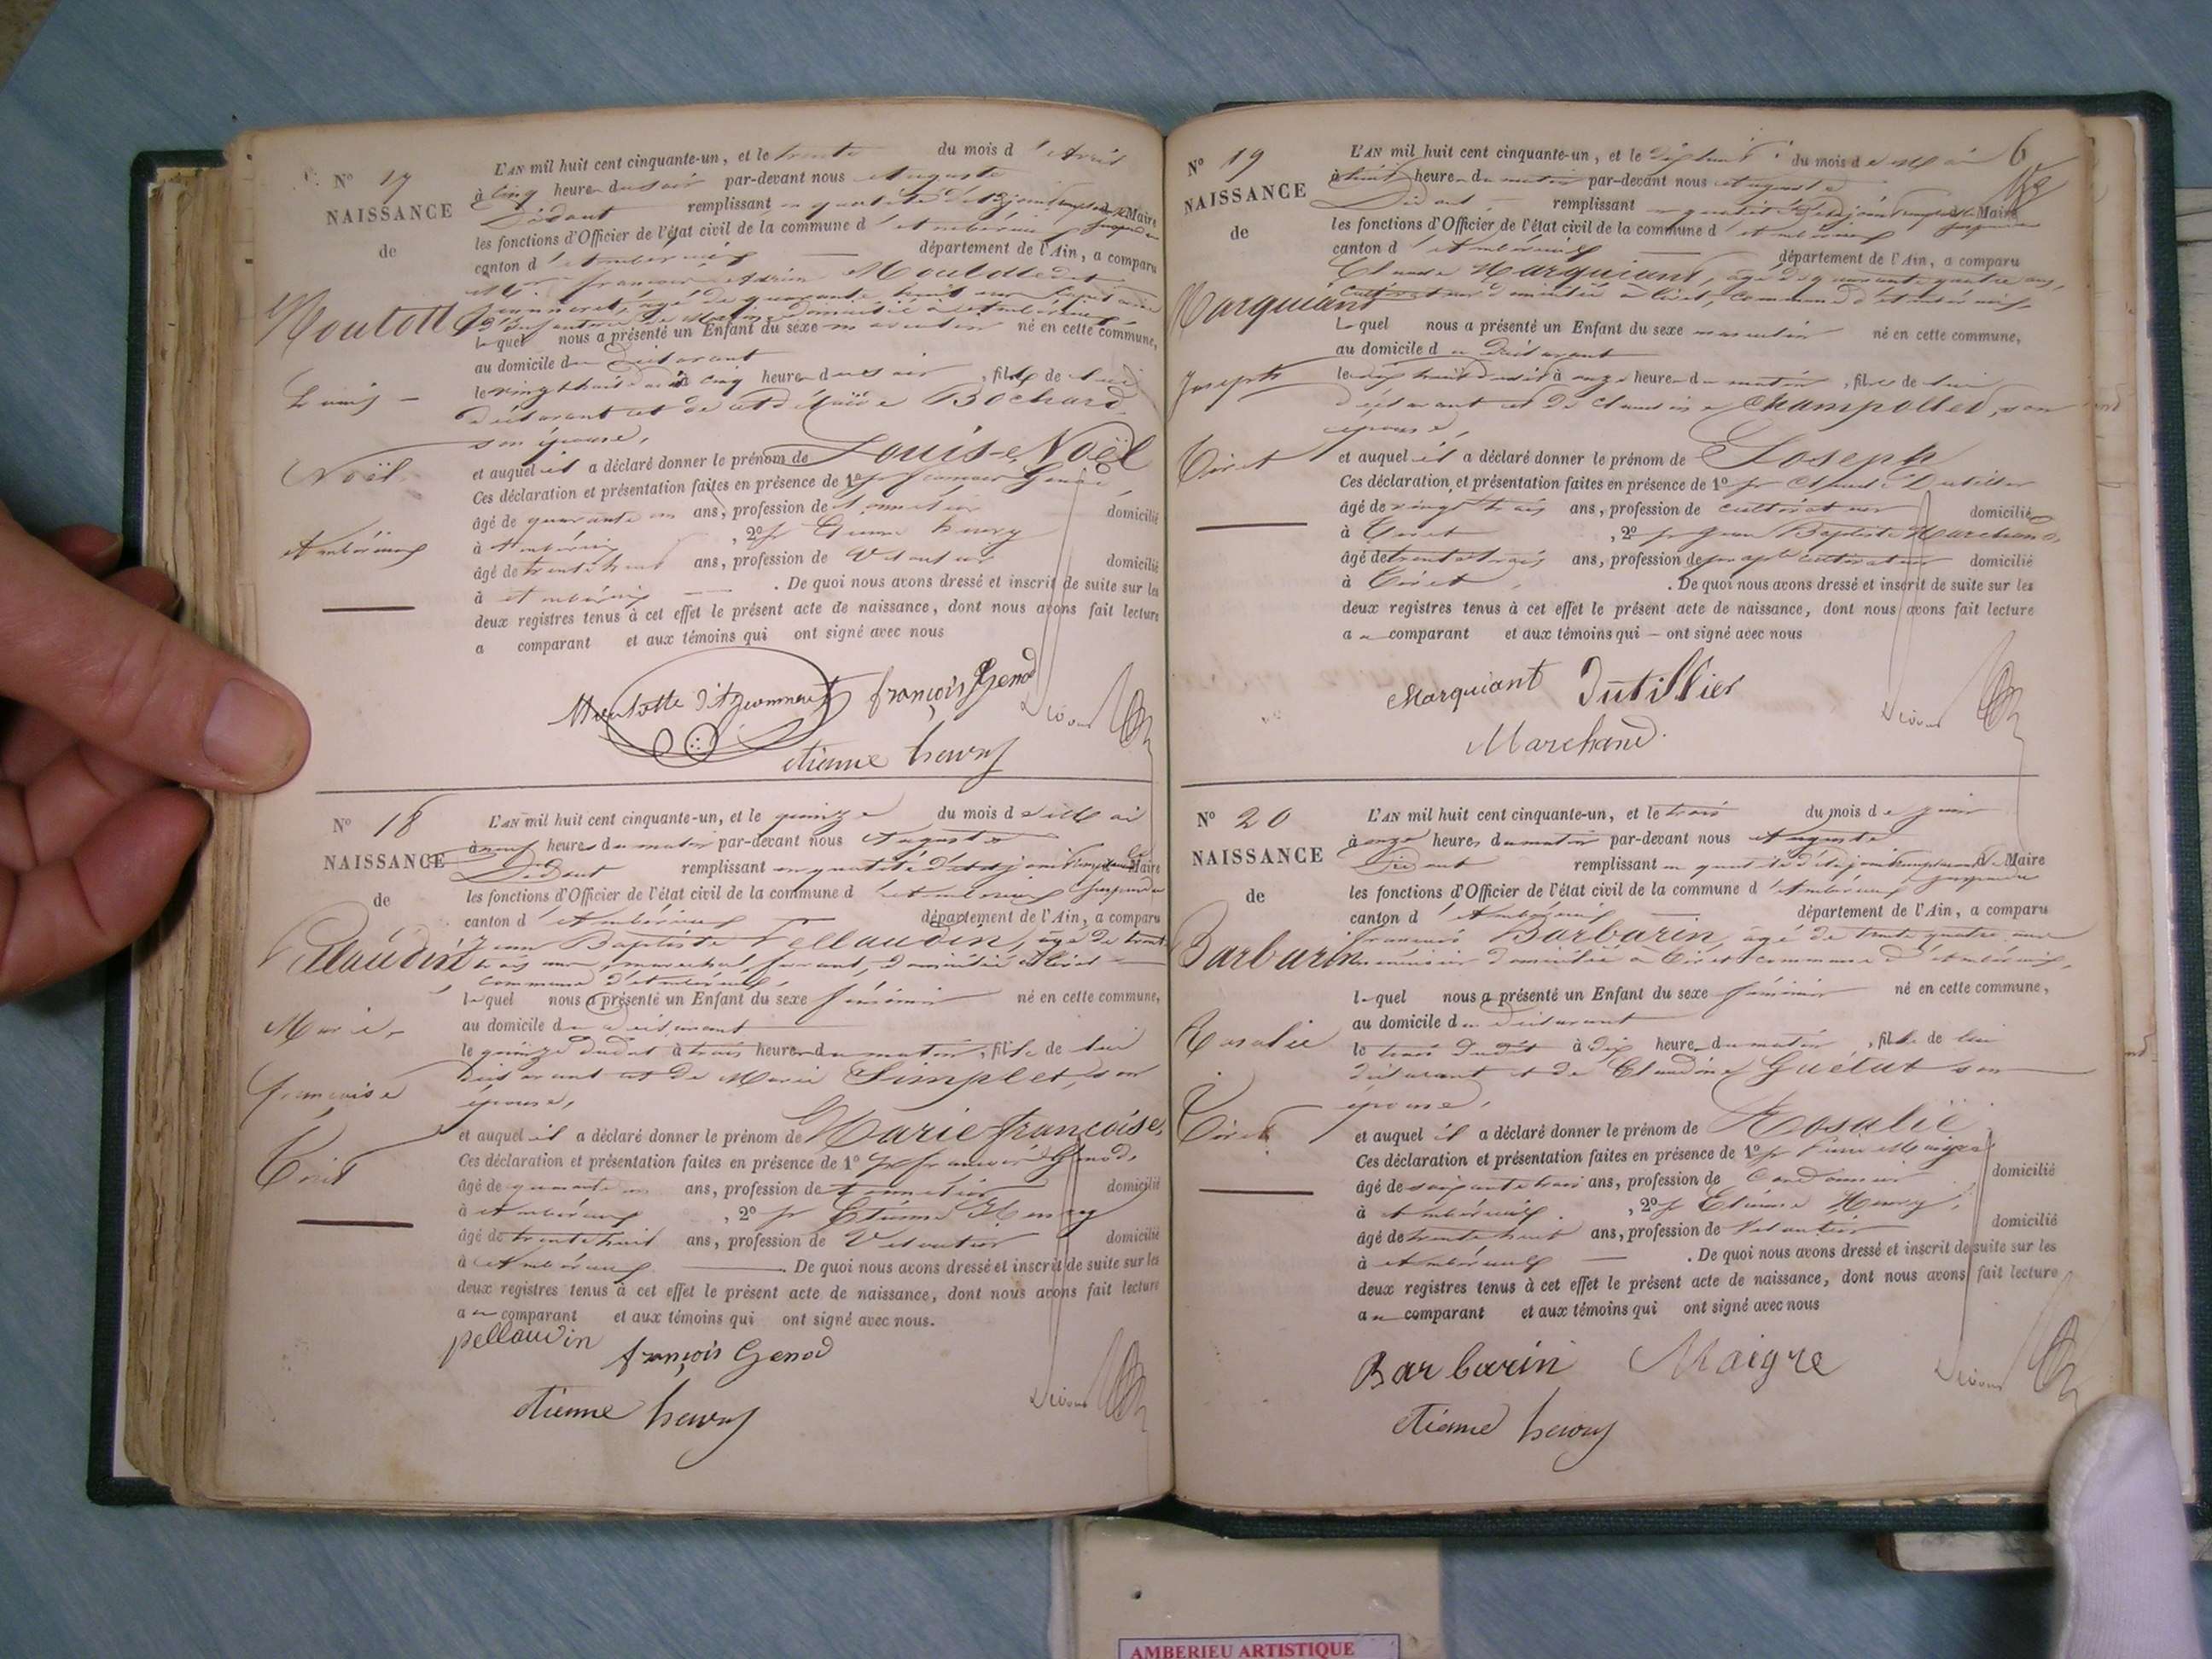 N° 17
NAISSANCE
de
Moutott
Louis
Noël
Ambérieux
L'AN mil huit cent cinquante-un, et le trente du mois d'Avril
à cinq heures du soir par-devant nous Auguste
Didout remplissant en qualité d'adjoint Maire
les fonctions d'Officier de l'état civil de la commune d'Ambérieux
canton d'Ambérieux département de l'Ain, a comparu
Mr françois
âgé de quarante huit ans
domicilié à Ambérieux,
lequel nous a présenté un Enfant du sexe masculin né en cette commune,
au domicile du Déclarant
le vingt huit à cinq heures du soir, fils de lui
déclarant et de Bochard
son épouse,
et auquel il a déclaré donner le prénom de Louis-Noël
Ces déclaration et présentation faites en présence de 1° françois Genod
âgé de quarante un ans, profession de domicilié
à Ambérieux, 2° Etienne henry
âgé de trente huit ans, profession de domicilié
à Ambérieux. De quoi nous avons dressé et inscrit de suite sur les
deux registres tenus à cet effet le présent acte de naissance, dont nous avons fait lecture
a comparant et aux témoins qui ont signé avec nous
françois Genod
etienne henry
N° 18
NAISSANCE
de
Pellaudin
Marie
françoise
L'AN mil huit cent cinquante-un, et le quinze du mois de Mai
à neuf heures du matin par-devant nous Auguste
Didout remplissant en qualité d'adjoint Maire
les fonctions d'Officier de l'état civil de la commune d'Ambérieux
canton d'Ambérieux département de l'Ain, a comparu
Jean Baptiste Pellaudin, âgé de trente
trois ans, marechal ferrant, domicilié
commune d'Ambérieux,
lequel nous a présenté un Enfant du sexe féminin né en cette commune,
au domicile du déclarant
le quinze dudit à trois heures du matin, fille de lui
déclarant et de Marie Simplet, son
épouse,
et auquel il a déclaré donner le prénom de Marie françoise,
Ces déclaration et présentation faites en présence de 1° françois Genod,
âgé de quarante un ans, profession de domicilié
à Ambérieux, 2° Etienne Henry
âgé de trente huit ans, profession de domicilié
à Ambérieux. De quoi nous avons dressé et inscrit de suite sur les
deux registres tenus à cet effet le présent acte de naissance, dont nous avons fait lecture
au comparant et aux témoins qui ont signé avec nous.
pellaudin
françois Genod
etienne henry
6
N° 19
NAISSANCE
de
Marquiant
Joseph
Tiret
L'AN mil huit cent cinquante-un, et le dix huit du mois de Mai
à huit heures du matin par-devant nous Auguste
Didout remplissant en qualité d'adjoint Maire
les fonctions d'Officier de l'état civil de la commune d'Ambérieux
canton d'Ambérieux département de l'Ain, a comparu
Claude Marquiant, âgé de quarante quatre ans,
cultivateur domicilié à Tiret, commune d'Ambérieux,
lequel nous a présenté un Enfant du sexe masculin né en cette commune,
au domicile du Déclarant
le dix huit dudit à onze heures du matin, fils de lui
déclarant et de Claudine Champollet, son
épouse,
et auquel il a déclaré donner le prénom de Joseph
Ces déclaration et présentation faites en présence de 1° Claude Dutillier
âgé de vingt trois ans, profession de cultivateur domicilié
à Tiret, 2° Jean Baptiste Marchand,
âgé de trente trois ans, profession de cultivateur domicilié
à Tiret. De quoi nous avons dressé et inscrit de suite sur les
deux registres tenus à cet effet le présent acte de naissance, dont nous avons fait lecture
au comparant et aux témoins qui ont signé avec nous
Marquiant Dutillier
Marchand
N° 20
NAISSANCE
de
Barbarin
Rosalie
Tiret
L'AN mil huit cent cinquante-un, et le trois du mois de juin
à onze heures du matin par-devant nous Auguste
Didout remplissant en qualité d'adjoint Maire
les fonctions d'Officier de l'état civil de la commune d'Ambérieux
canton d'Ambérieux département de l'Ain, a comparu
françois Barbarin, âgé de trente quatre ans
domicilié à Tiret commune d'Ambérieux,
lequel nous a présenté un Enfant du sexe féminin né en cette commune,
au domicile du Déclarant
le trois dudit à dix heures du matin, fille de lui
déclarant et de Claudine Guélut son
épouse,
et auquel il a déclaré donner le prénom de Rosalie
Ces déclaration et présentation faites en présence de 1° Maigre
âgé de soixante trois ans, profession de Cordonnier domicilié
à Ambérieux, 2° Etienne Henry,
âgé de trente huit ans, profession de domicilié
à Ambérieux. De quoi nous avons dressé et inscrit de suite sur les
deux registres tenus à cet effet le présent acte de naissance, dont nous avons fait lecture
au comparant et aux témoins qui ont signé avec nous
Barbarin Maigre
etienne henry
AMBERIEU ARTISTIQUE